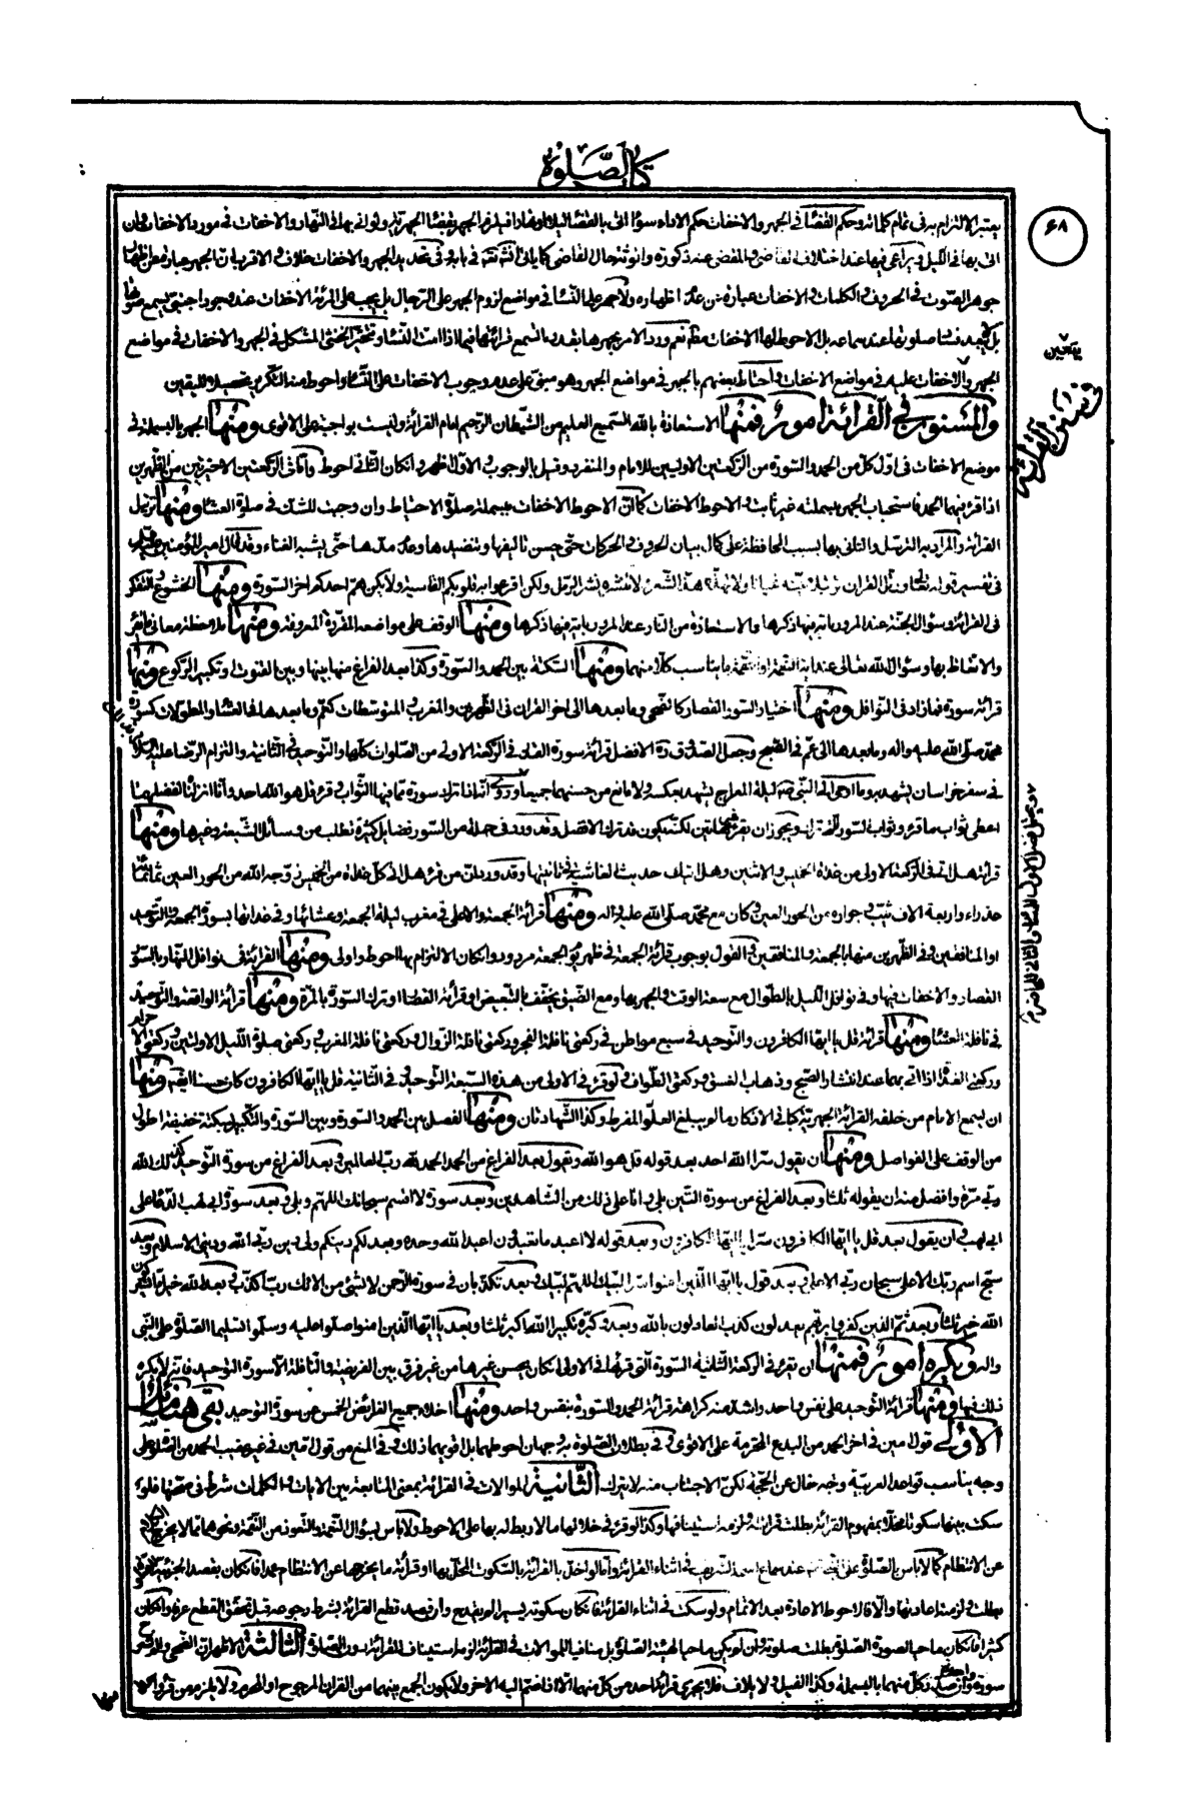 كتاب الصلوة
٦٨
يعتبر الالتزام به في تمام كلماته وحكم القضاء في الجهر والاخفات حكم الاداء سواء اتى بالقضاء ليلا او نهارا فيلزم الجهر بقضاء الجهرية ولو اتى بها في النهار والاخفات في مورد الاخفات وان
اتى بها في الليل ويراعى فيها عند اختلاف القاضي والمقضي عنه ذكورة وانوثة حال القاضي كما ياتي في بابه وفي تحديد الجهر والاخفات خلاف والاقرب ان الجهر عبارة عن اظهار
جوهر الصوت في الحروف والكلمات والاخفات عبارة عن عدم اظهاره ولا جهر على النساء في مواضع لزوم الجهر على الرجال بل يجب على المرئة الاخفات عند وجود اجنبي يسمع صوتها
بل لا يبعد فساد صلوتها عند سماعه بل الاحوط لها الاخفات مطلقا نعم ورد الامر بجهرها بقدر ما تسمع قرائتها فيما اذا امت النساء وتخير الخنثى المشكل في الجهر والاخفات في مواضع
الجهر والاخفات عليه في مواضع الاخفات واحتاط بعضهم بالجهر في مواضع الجهر وهو مبني على عدم وجوب الاخفات على النساء واحوط منه التكرير تحصيلا لليقين
والمسنون في القرائة امور فمنها الاستعاذة بالله السميع العليم من الشيطان الرجيم امام القرائة وليست بواجبة على الاقوى ومنها الجهر بالبسملة في
موضع الاخفات في اول كل من الحمد والسورة من الركعتين الاوليين للامام والمنفرد وقيل بالوجوب والاول اظهر وان كان الثاني احوط واما في الركعتين الاخيرتين من الظهرين
اذا قرء فيهما الحمد فاستحباب الجهر ببسملته غير ثابت والاحوط الاخفات كما ان الاحوط الاخفات ببسملة صلوة الاحتياط وان وجبت للشك في صلوة العشاء ومنها ترتيل
القرائة والمراد به الترسل والتاني بها بسبب المحافظة على كمال بيان الحروف والحركات حتى يحسن تاليفها وتنضيدها وعدم مدها حتى يشبه الغناء وقد قال امير المؤمنين عليه السلام
في تفسير قوله تعالى ورتل القران ترتيلا بينه تبيانا ولا تهذه هذ الشعر ولا تنثره نثر الرمل ولكن اقرعوا به قلوبكم القاسية ولا يكن هم احدكم اخر السورة ومنها الخشوع والتفكر
في القرائة وسؤال الجنة عند المرور باية فيها ذكرها والاستعاذة من النار عند المرور باية فيها ذكرها ومنها الوقف على مواضعه المقررة المعروفة ومنها ملاحظة معاني ما يقرء
والاتعاظ بها وسؤال الله تعالى عند اية النعمة او النقمة ما يناسب كلا منهما ومنها السكتة بين الحمد والسورة وكذا بعد الفراغ منها بينها وبين القنوت او تكبير الركوع ومنها
قرائة سورة فما زاد في النوافل ومنها اختيار السور القصار كالضحى وما بعدها الى اخر القران في الظهرين والمغرب والمتوسطات كعم وما بعدها في العشاء والمطولات كسورة
محمد صلى الله عليه واله وما بعدها الى عم في الصبح وجعل الصدوق ره الافضل قرائة سورة القدر في الركعة الاولى من الصلوات كلها والتوحيد في الثانية والتزام الرضا عليه السلام
في سفر خراسان يشهد به وما اوحي الى النبي ص ليلة المعراج يشهد بعكسه ولا مانع من حسنهما جميعا وورد ان من ترك سورة مما فيها الثواب وقرء قل هو الله احد وانا انزلناه لفضلهما
اعطي ثواب ما قرء وثواب السورة التي ترك ويجوز ان يقرء غيرهاتين لكنه يكون قد ترك الافضل وقد ورد في جملة من السور فضايل كثيرة تطلب من وسائل الشيعة وغيرها ومنها
قرائة هل اتى في الركعة الاولى من غداة الخميس والاثنين وهل اتيك حديث الغاشية في ثانيتها وقد ورد ان من قرء هل اتى كل غداة من الخميس زوجه الله من الحور العين ثمانمائة
عذراء واربعة الاف ثيب وحوراء من الحور العين وكان مع محمد صلى الله عليه واله ومنها قرائة الجمعة والاعلى في مغرب ليلة الجمعة وعشائها وفي غداتها بسورة الجمعة والتوحيد
او المنافقين وفي الظهرين منها بالجمعة والمنافقين والقول بوجوب قرائة الجمعة في ظهر يوم الجمعة مردود وان كان الالتزام بها احوط واولى ومنها القرائة في نوافل النهار بالسور
القصار والاخفات فيها وفي نوافل الليل بالطوال مع سعة الوقت والجهر بها ومع الضيق يخفف بالتبعيض او قرائة القصار او ترك السورة بالمرة ومنها قرائة الواقعة والتوحيد
في نافلة العشاء ومنها قرائة قل يا ايها الكافرون والتوحيد في سبع مواطن في ركعتي نافلة الفجر وركعتي نافلة الزوال وركعتي نافلة المغرب وركعتي صلوة الليل الاوليتين وركعتي الاحرام
وركعتي الغداة اذا اتى بهما عند انتشار الصبح وذهاب الغسق وركعتي الطواف ولو قرء في الاولى من هذه السبعة التوحيد وفي الثانية قل يا ايها الكافرون كان حسنا ايضا ومنها
ان يسمع الامام من خلفه القرائة الجهرية كباقي الاذكار ما لم يبلغ العلو المفرط وكذا الشهادتان ومنها الفصل بين الحمد والسورة وبين السورة والتكبير بسكتة خفيفة اطول
من الوقف على الفواصل ومنها ان يقول سرا الله احد بعد قوله قل هو الله ويقول بعد الفراغ من الحمد الحمد لله رب العالمين وبعد الفراغ من سورة التوحيد كذلك الله
ربي مرة وافضل منه ان يقوله ثلثا وبعد الفراغ من سورة التين بلى وانا على ذلك من الشاهدين وبعد سورة لا اقسم سبحانك اللهم وبلى وبعد سورة ابي لهب الدعاء على
ابي لهب وان يقول بعد قل يا ايها الكافرون سرا يا ايها الكافرون وبعد قوله لا اعبد ما تعبدون اعبد الله وحده وبعد لكم دينكم ولي دين ربي الله وديني الاسلام وبعد
سبح اسم ربك الاعلى سبحان ربي الاعلى وبعد قول يا ايها الذين امنوا سرا لبيك اللهم لبيك وبعد تكذبان في سورة الرحمن لا بشئ من الائك رب اكذب وبعد الله خير اما يشركون
الله خير ثلثا وبعد ثم الذين كفروا بربهم يعدلون كذب العادلون بالله وبعد وكبره تكبيرا الله اكبر ثلثا وبعد يا ايها الذين امنوا صلوا عليه وسلموا تسليما الصلوة على النبي
واله ويكره امور فمنها ان يقرء في الركعة الثانية السورة التي قرئها في الاولى ان كان يحسن غيرها من غير فرق بين الفريضة والنافلة الا سورة التوحيد فانه لا يكره
ذلك فيها ومنها قرائة التوحيد على نفس واحد واشد منه كراهة قرائة الحمد والسورة بنفس واحد ومنها اخلاء جميع الفرائض الخمس عن سورة التوحيد بقي هنا مسائل
الاولى قول امين في اخر الحمد من البدع المحرمة على الاقوى وفي بطلان الصلوة به وجهان احوطهما بل اقويهما ذلك وفي المنع من قول امين في غير عقيب الحمد من الصلوة على
وجه يناسب قواعد العربية وجه خال عن الحجة لكن الاجتناب منه لا يترك الثانية الموالات في القرائة بمعنى المتابعة بين الايات والكلمات شرط في صحتها فلو
سكت بينها سكوتا مخلا بمفهوم القرائة بطلت قرائته ولزمه استينافها وكذا لو قرء في خلالها ما لا ربط له بها على الاحوط ولا باس بسؤال الرحمة والتعوذ من النقمة ونحوهما مما لا يخرج القرائة
عن الانتظام كما لا باس بالصلوة على النبي ص عند سماع اسمه الشريف في اثناء القرائة واما لو اخل بالقرائة بالسكوت المخل بها او قرائة ما يخرجها عن الانتظام عمدا فان كان بقصد الجزئية
بطلت ولزمه اعادتها والا فالاحوط الاعادة بعد الاتمام ولو سكت في اثناء القرائة فان كان سكوته يسيرا لم يقدح وان قصد قطع القرائة بشرط رجوعه قبل تحقق القطع عرفا وان كان
كثيرا فان كان ماحيا لصورة الصلوة بطلت صلوته وان لم يكن ماحيا لهيئة الصلوة بل منافيا للموالات في القرائة لزمه استيناف القرائة دون الصلوة الثالثة الاظهر ان الضحى والم نشرح
سورة واحدة وان فصل كل منهما بالبسملة وكذا الفيل ولايلاف فلا تجزي قرائة واحدة من كل منهما الا اذا ضم اليه الاخرى ولا يكون الجمع بينهما من القران المرجوح او المحرم ولا يلزم من قرء
يتعين
في سنن القرائة